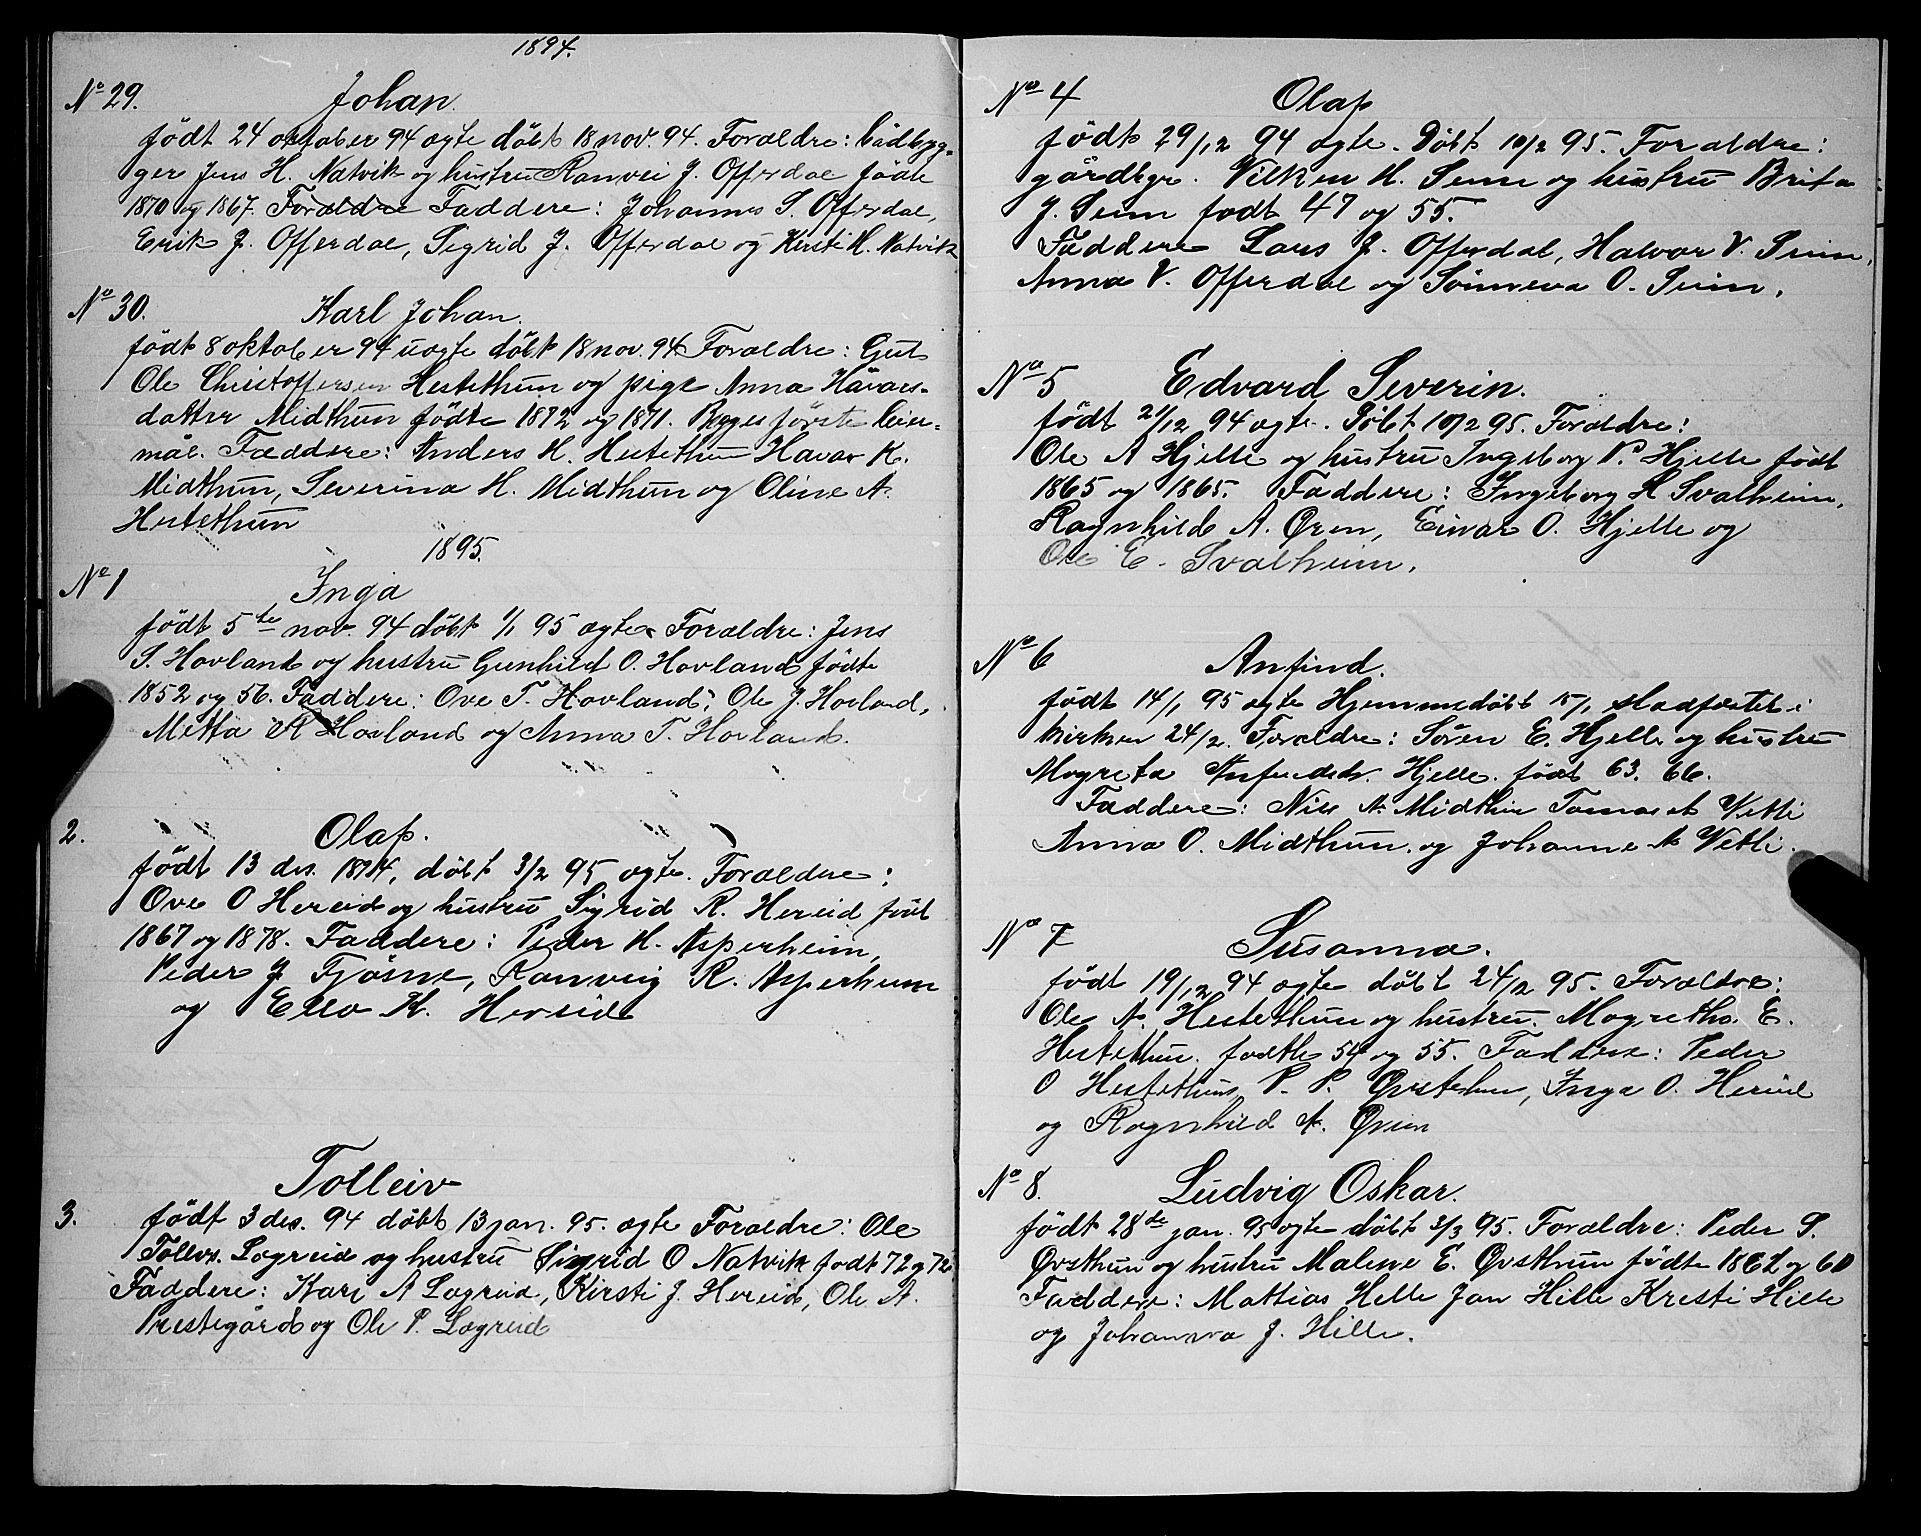 1894.
No 29.
Johan.
født 24 oktober 94 ægte døbt 18 nov. 94. Foræeldre: bådbyg-
ger Jens H. Natvik og hustru Ranvei J. Offerdal føde
1870 og 1867. Forældre Faddere: Johannes S. Offerdal,
Erik J. Offerdal, Sigrid J. Offerdal og Kirsti H. Natvik
No 30.
Karl Johan.
født 8 oktober 94 uægte døbt 18 nov. 94 Forældre: Gut
Ole Christoffersen Hestethun og pige Anna Håvars-
datter Midthun fødte 1872 og 1871. Begges første leier-
mål. Faddere: Anders H. Hestethun Havar K.
Midthun, Severina H. Midthun og Oline A.
Hestethun
1895.
No 1
Inga
født 5te nov. 94 døbt 1/1 95 ægte Forældre: Jens
S. Hovland og hustru Gunhild O. Hovland fødte
1852 og 56. Faddere: Ove T. Hovland, Ole J Hovland,
Metta R Hovland og Anna T. Hovland.
2.
Olaf.
født 13 des. 1894, døbt 3/2 95 ægte. Forældre:
Ove O Hereid og hustru Sigrid R. Hereid født
1867 og 1878. Faddere: Peder H. Asperheim,
Peder J Fjøsne, Ranveig R. Asperheim
og Ella K. Hereid
Tolleiv
3.
født 3 des. 94 døbt 13 jan. 95. ægte Forældre: Ole
Tollvs. Lægreid og hustru Sigrid O Natvik født 72 og 72
Faddere: Kari A Lægreid, Kirsti J. Hereid, Ole A.
Prestegård og Ole P. Lægreid
No 4
Olaf
født 29/12 94 ægte. Døbt 10/2 95. Forældre:
gårdbgr. Vilken H. Seim og hustru Brita
J. Seim født 47 og 55.
Faddere Lars J. Offerdal, Halvor V. Seim,
Anna V. Offerdal og Sønneva O. Seim.
No 5
Edvard Severin.
født 21/12 94 ægte. Døbt 10/2 95. Forældre:
Ole A Hjelle og hustru Ingeborg P. Hjelle født
1865 og 1865. Faddere: Ingeborg H Svalheim,
Ragnhild A. Øren, Einar O. Hjelle og
Ole E. Svalheim.
No 6
Anfind.
født 14/1 95 ægte Hjemmedøbt 15/1 stadfæstet i
kirken 24/2. Forældre: Søren E. Hjelle og hustru
Magreta Anfindsdr. Hjelle. født 63. 66.
Faddere: Nils A. Midthun Tomas A Vetti
Anna O. Midthun. og Johanne A Vetti.
No 7
Susanna.
født 19/12 94 ægte døbt 24/2 95. Forældre:
Ole A. Hestethun og hustru. Magretha. E.
Hestethun. fødte 54 og 55. Faddere: Peder
O Hestethun P. P. Øvstethun, Inga O. Hereid
og Ragnhild A. Øren
No 8.
Ludvig Oskar.
født 28de jan. 95 ægte døbt 3/3 95. Forældre: Peder S.
Øvsthun og hustru Malene E. Øvsthun fødte 1862 og 60
Faddere: Mattias Hille Jan Hille Kristi Hille
og Johanna J. Hille.